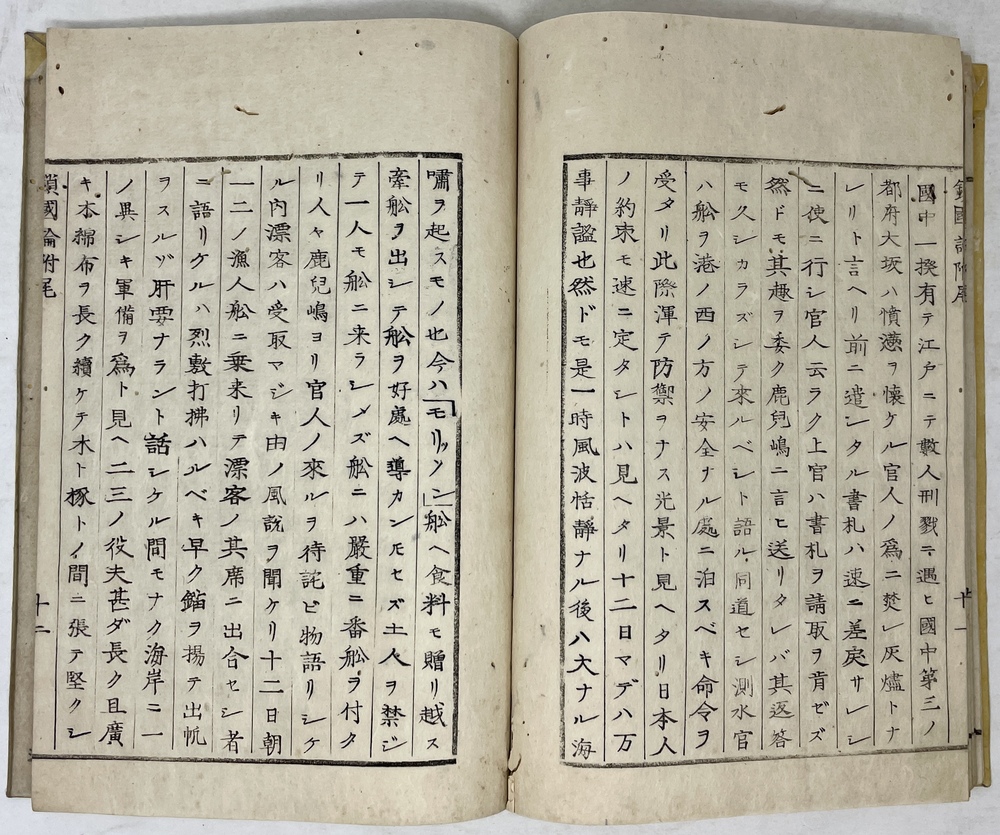 鎖國論附尾 十一
國中一揆有テ江戸ニテ數人刑戮ニ遇ヒ國中第三ノ
都府大坂ハ憤懣ヲ懐ケル官人ノ爲ニ焚レ灰燼トナ
レリト言ヘリ前ニ遣シタル書札ハ速ニ差戻サレシ
ニ使ニ行シ官人云ラク上官ハ書札ヲ請取ヲ肯ゼズ
然ドモ其趣ヲ委ク鹿兒嶋ニ言ヒ送リタレバ其返答
モ久シカラズシテ來ルベシト語ル同道セシ測水官
ハ舩ヲ港ノ西ノ方ノ安全ナル處ニ泊スベキ命令ヲ
受タリ此際渾テ防禦ヲナス光景ト見ヘタリ日本人
ノ約束モ速ニ定タシトハ見ヘタリ十二日マデハ万
事靜謐也然ドモ是一時風波恬靜ナル後ハ大ナル海
嘯ヲ起スモノ也今ハ「モリソン」舩ヘ食料モ贈リ越ス
牽舩ヲ出シテ舩ヲ好處ヘ導カンㇳモセズ土人ヲ禁ジ
テ一人モ舩ニ来ラシメズ舩ニハ嚴重ニ番舩ヲ付タ
リ人々鹿兒嶋ヨリ官人ノ來ルヲ待詫ビ物語リシケ
ル内漂客ハ受取マジキ由ノ風説ヲ聞ケリ十二日朝
一二ノ漁人舩ニ乗来リテ漂客ノ其席ニ出合セシ者
ニ語リケルハ烈敷打拂ハルベキ早ク錨ヲ揚テ出帆
ヲスルゾ肝要ナラント話シケル間モナク海岸ニ一
ノ異シキ軍備ヲ爲ト見ヘ二三ノ役夫甚ダ長ク且廣
キ木綿布ヲ長ク續ケテ木ト杭トノ間ニ張テ堅クシ
鎖國論附尾 十二